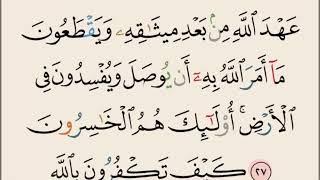 عَهْدَ ٱللَّهِ مِنۢ بَعْدِ مِيثَٰقِهِۦ وَيَقْطَعُونَ
مَآ أَمَرَ ٱللَّهُ بِهِۦٓ أَن يُوصَلَ وَيُفْسِدُونَ فِى
ٱلْأَرْضِ ۚ أُو۟لَٰٓئِكَ هُمُ ٱلْخَٰسِرُونَ
٢٧ كَيْفَ تَكْفُرُونَ بِٱللَّهِ